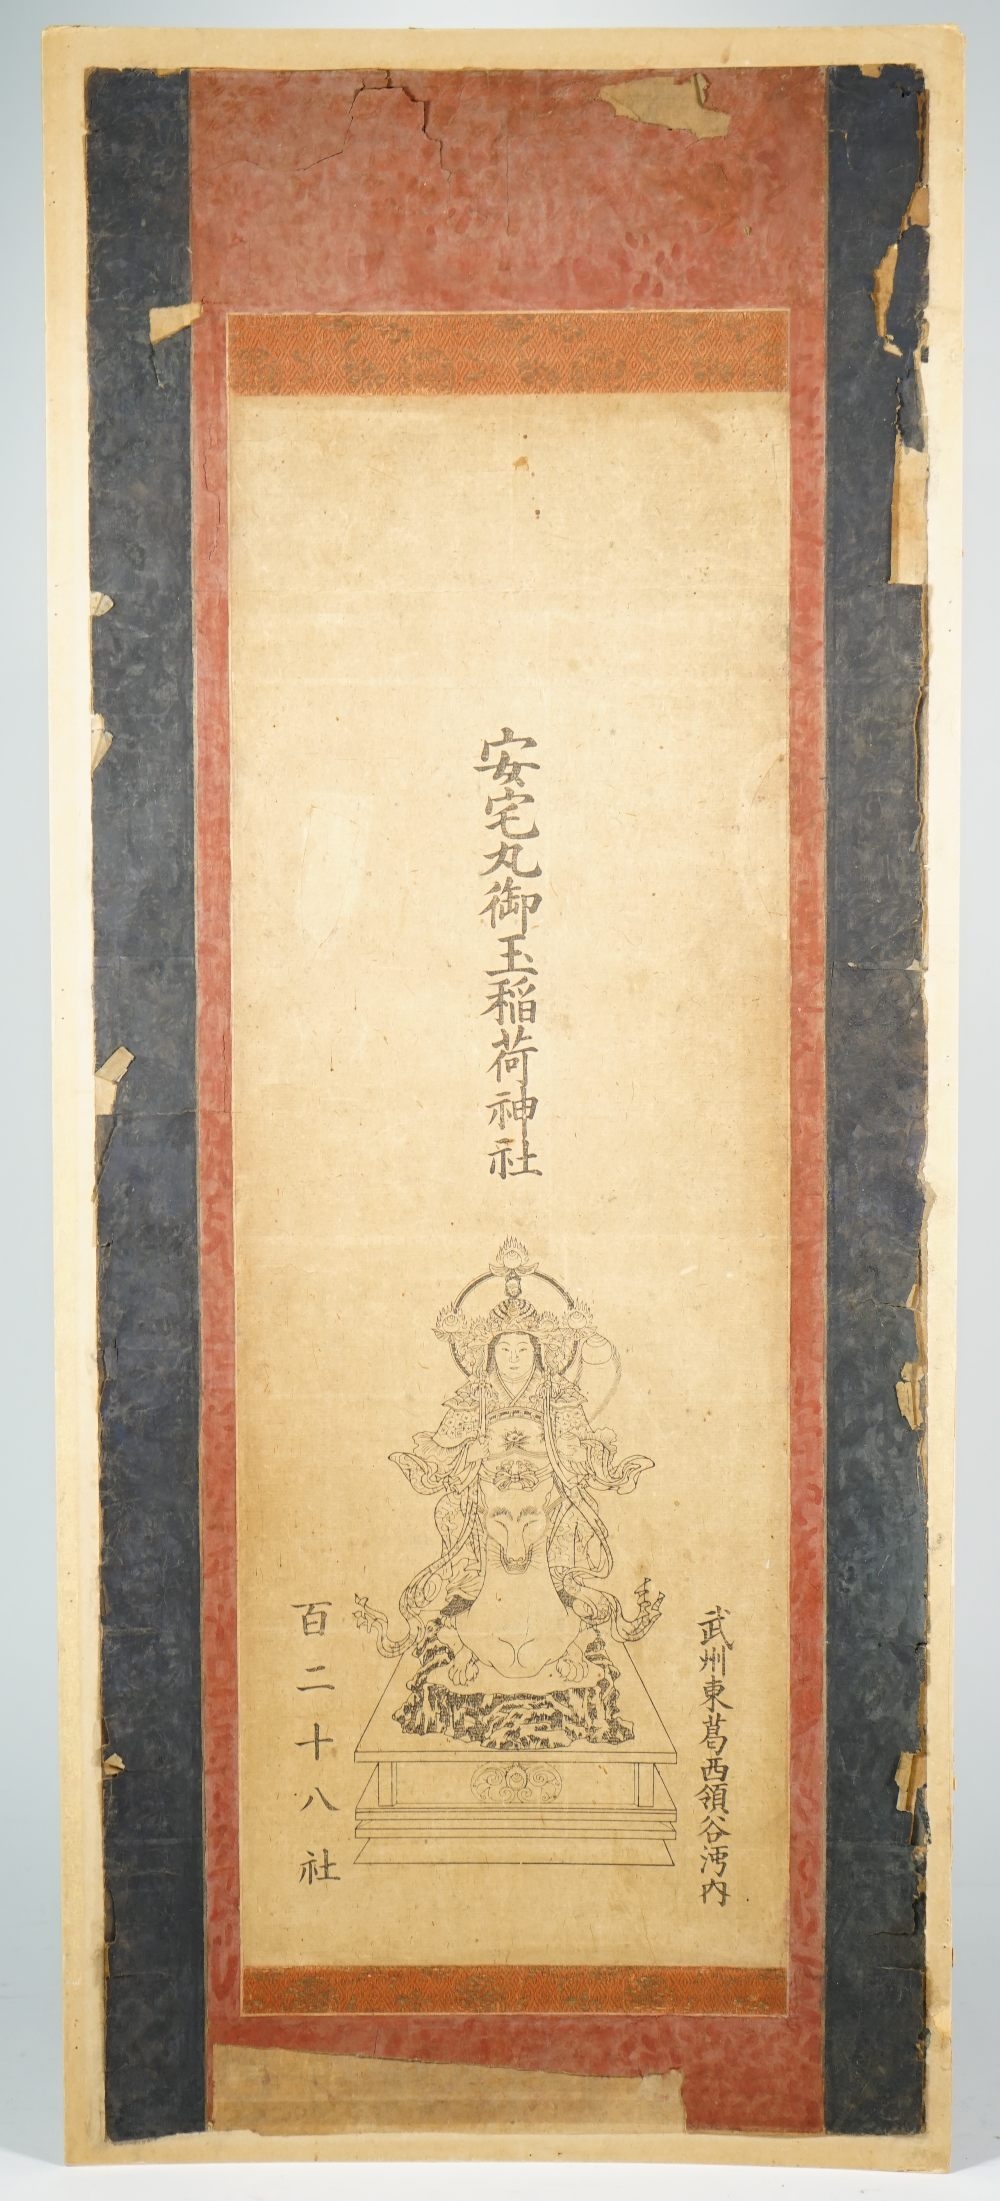 安宅丸御玉稲荷神社
武州東葛西領谷河内
百二十八社